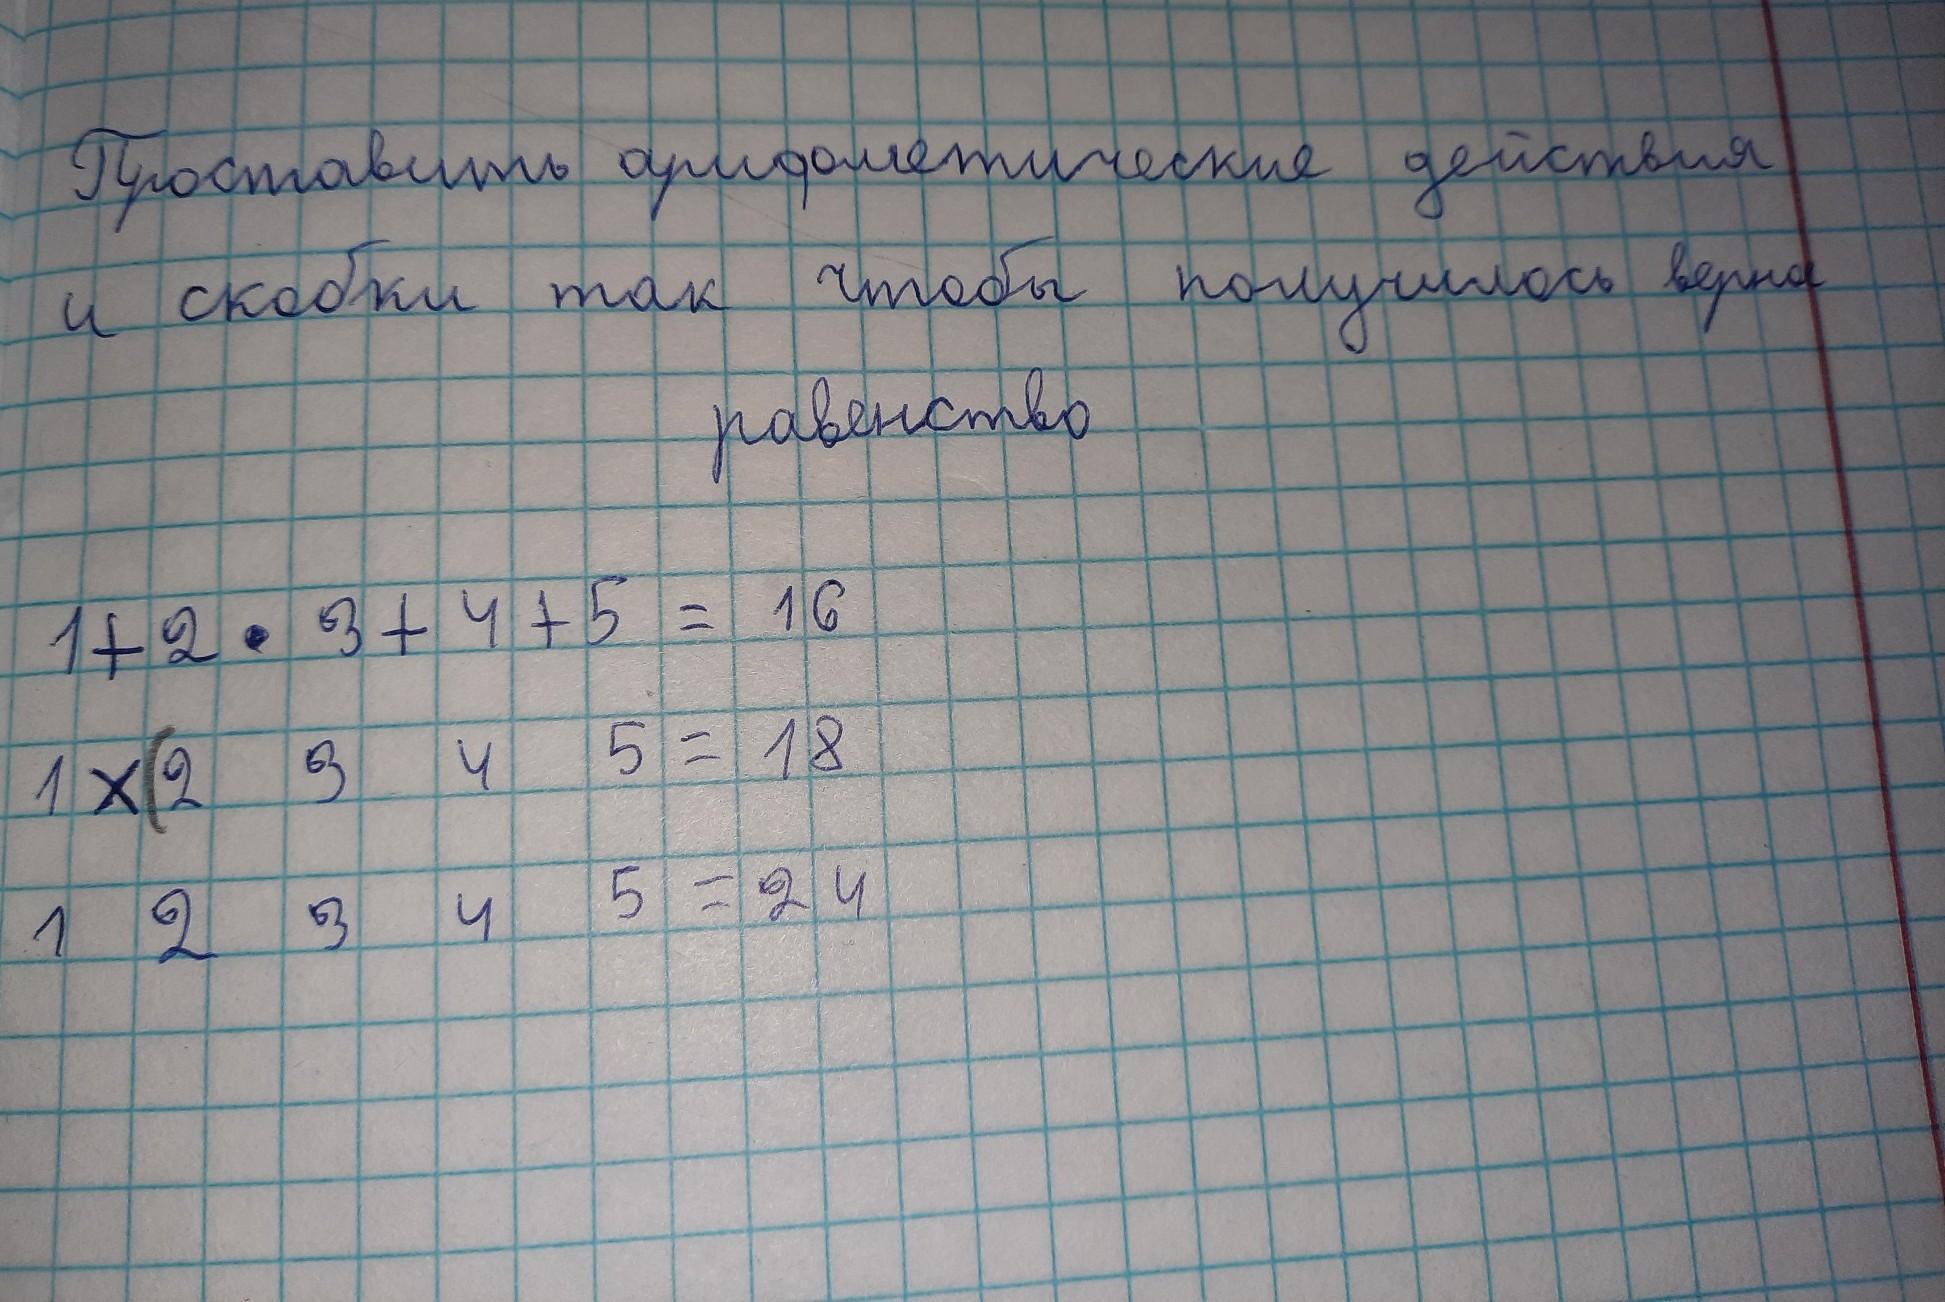 Проставить арифометические действия
и скобки так чтобы получилось верна
равенство
1+2•3+4+5=16
1×(2 3 4 5=18
1 2 3 4 5=24